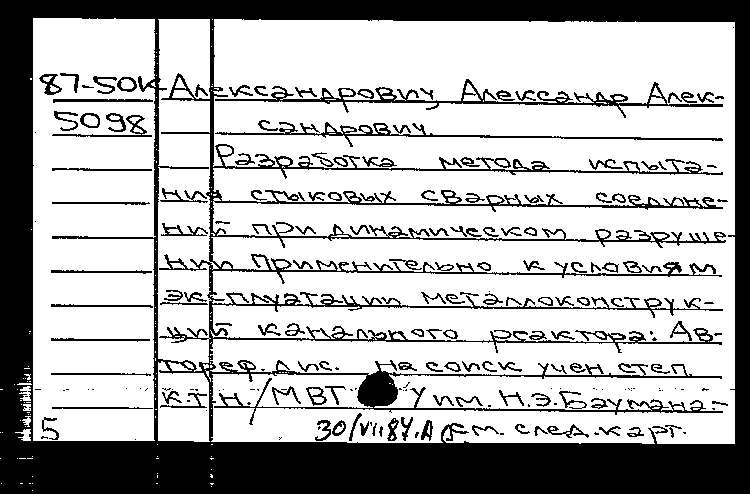 87-50К Александрович, Александр Алек-
5098 сандрович.
Разработка метода испыта-
ния стыковых сварных соедине-
ний при динамическом разруше-
нии применительно к условиям
эксплуатации металлоконструк-
ций канального реактора: Ав-
тореф. дис. на соиск учен. степ.
к.т.н. / МВТ У им. Н.Э.Баумана.-
5 30/VII 87. А см. след. карт.